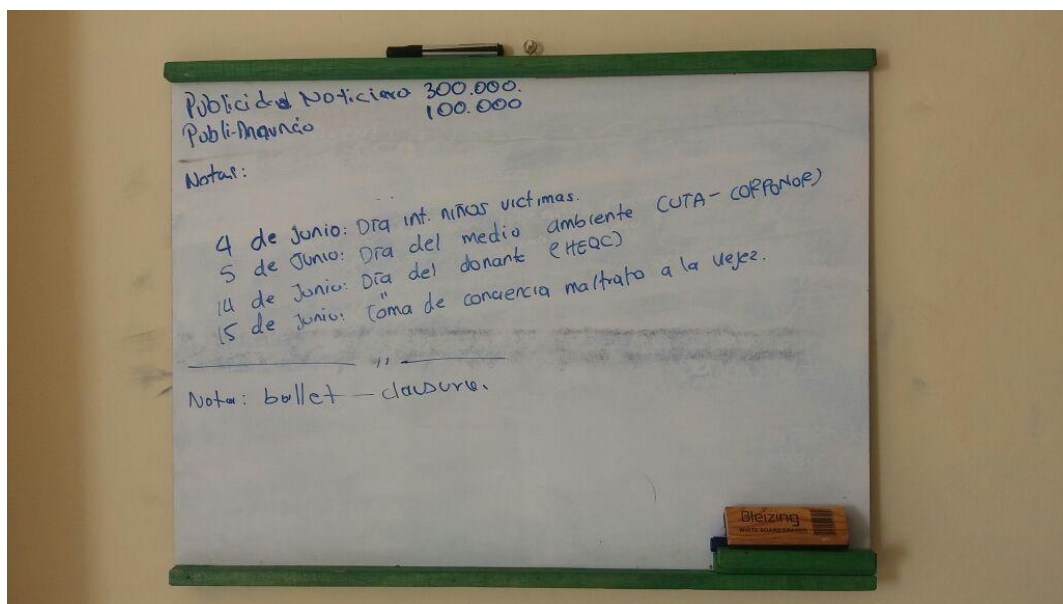 Publicidad Noticiero 300.000.
Publi-Anuncio 100.000
Notas:
4 de Junio: Día int. niños victimas.
5 de Junio: Día del medio ambiente (UTA - CORPONOR)
14 de Junio: Día del donante (HEQC)
15 de Junio: " Toma de conciencia maltrato a la vejez.
"
Nota: ballet - clausura.
Bleizing
WHITE BOARD ERASER